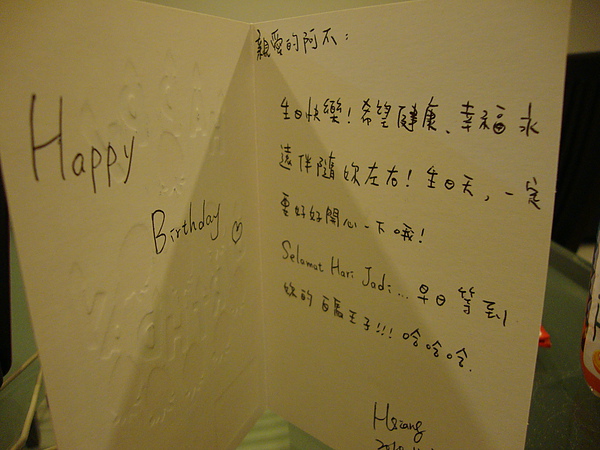 Happy
Birthday ♡
親愛的阿不：
生日快樂！希望健康、幸福永
遠伴隨妳左右！生日天，一定
要好好開心一下哦！
Selamat Hari Jadi... 早日等到
妳的白馬王子!!! 哈哈哈.
Hsiang